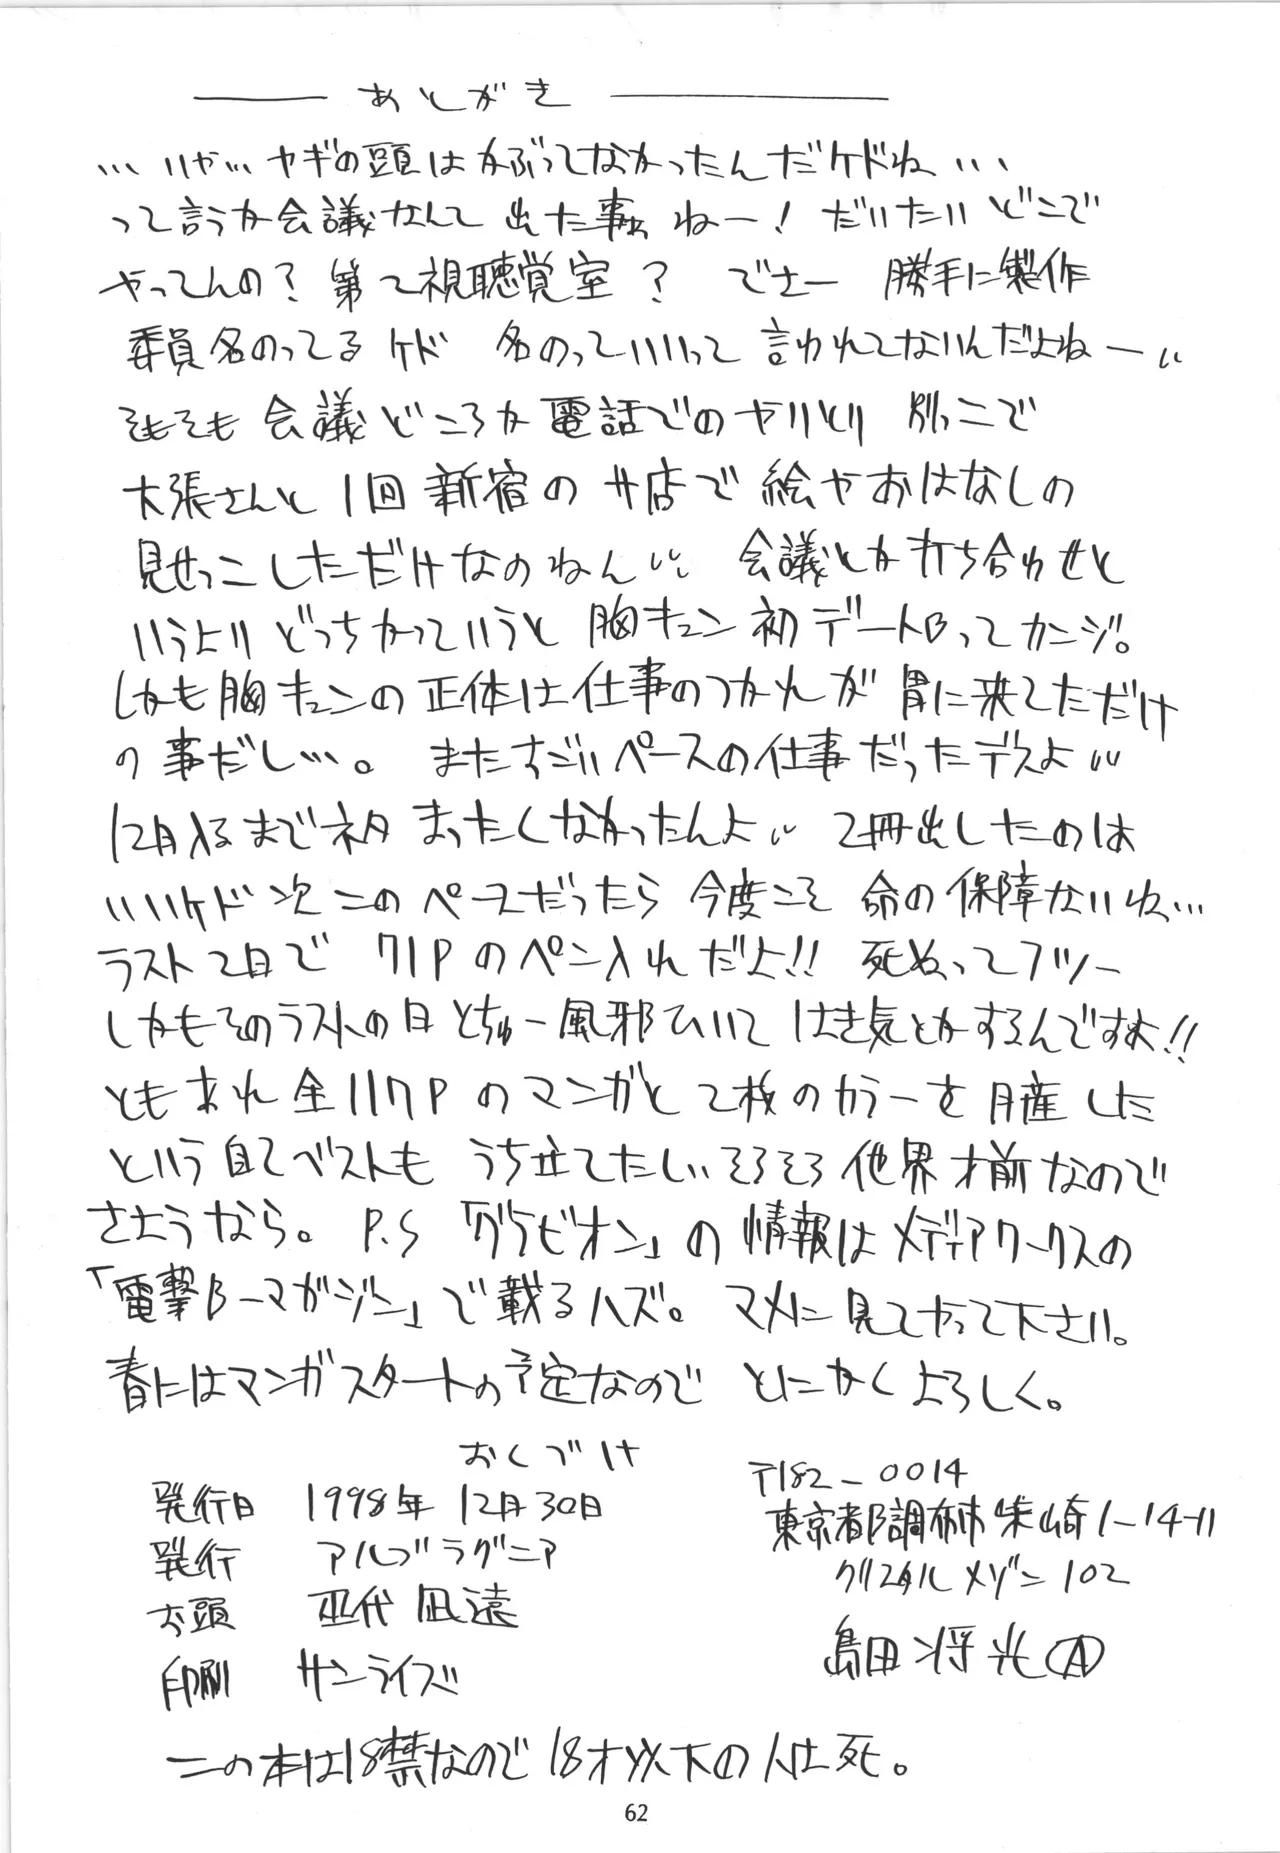 あとがき
…いや…ヤギの頭はかぶってなかったんだケドね…
って言うか会議なんて出た事ねー！だいたいどこで
やってんの？第2視聴覚室？でさー勝手に製作
委員名のってるケド名のっていいって言われてないんだよねー
そもそも会議どころか電話でのやりとりっこで
大張さんと1回新宿のサ店で絵やおはなしの
見せっこしただけなのねん 会議とか打ち合わせと
いうよりどっちかっていうと胸キュン初デートBってカンジ。
しかも胸キュンの正体は仕事のつかれが胃に来てただけ
の事だし…。またすごいペースの仕事だったデスよ
12月入るまでネタまったくなかったんよ 2冊出したのは
いいケド次このペースだったら今度こそ命の保障ないね…
ラスト2日で71Pのペン入れだよ!! 死ぬってフツー
しかもそのラストの日とちゅー風邪ひいてはき気とかするんですよ!!
ともあれ全117Pのマンガと2枚のカラーを月産した
という自己ベストもうち立てたしそろそろ他界寸前なので
さようなら。P.S「グラビオン」の情報はメディアワークスの
「電撃B-マガジン」で載るハズ。マメに見てやって下さい。
春にはマンガスタートの予定なのでとにかくよろしく。
おくづけ
発行日 1998年12月30日
発行 アルプラグニア
お頭 巫代凪遠
印刷 サンライズ
〒182-0014
東京都調布市柴崎1-14-11
クリスタルメゾン102
島田将光Ⓐ
この本は18禁なので18才以下の人は死。
62